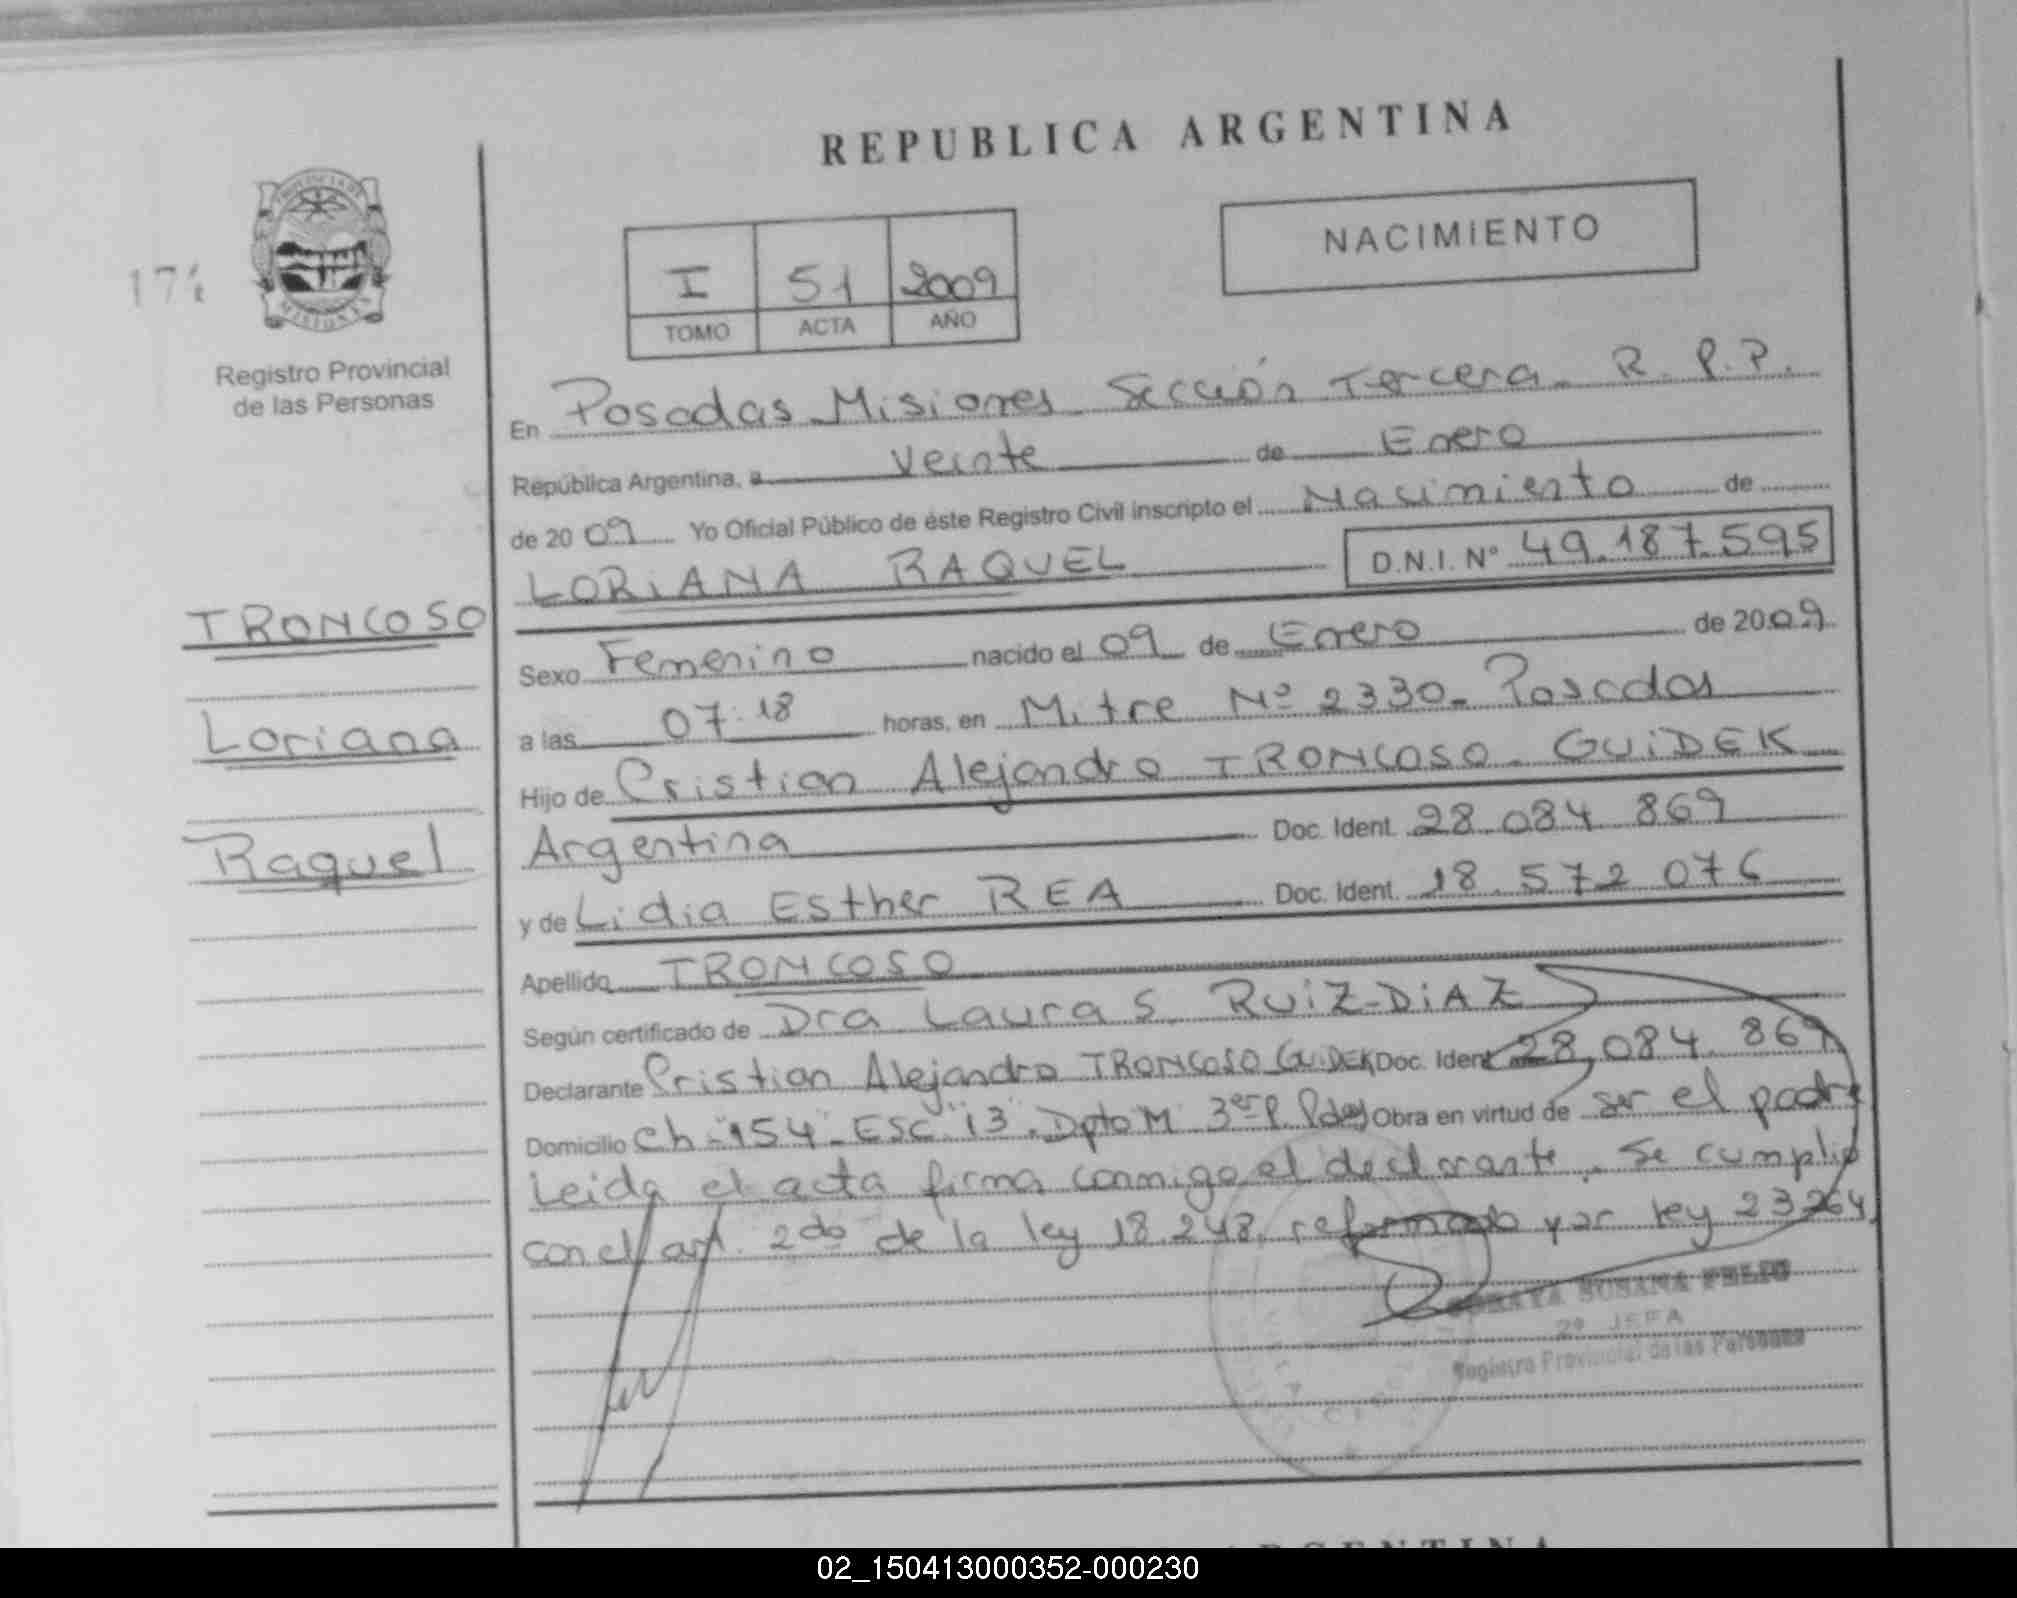 REPUBLICA ARGENTINA
NACIMIENTO
I 51 2009
TOMO ACTA AÑO
Registro Provincial
de las Personas
En Posadas Misiones Sección Tercera R.P.P.
República Argentina, a veinte de Enero
de 2009 Yo Oficial Público de éste Registro Civil inscripto el Nacimiento de
LORIANA RAQUEL D.N.I. Nº 49.187.595
TRONCOSO
Loriana
Raquel
Sexo Femenino nacido el 09 de Enero de 2009
a las 07:18 horas, en Mitre Nº 2330 - Posadas
Hijo de Cristian Alejandro TRONCOSO - GUiDEK
Argentina Doc. Ident. 28.084.869
y de Lidia Esther REA Doc. Ident. 18.572.076
Apellido TRONCOSO
Según certificado de Dra Laura S. RUiZ-DiAZ
Declarante Cristian Alejandro TRONCOSO GUiDEK Doc. Ident. 28.084.869
Domicilio Ch-154-Esc "13" Dpto M 3er P. Pdas Obra en virtud de ser el padre
Leida el acta firma conmigo el declarante. Se cumplió
con el art. 2do de la ley 18.248, reformado por ley 23264
SUSANA
2º JEFA
Registro Provincial de las Personas
ARGENTINA
02_150413000352-000230